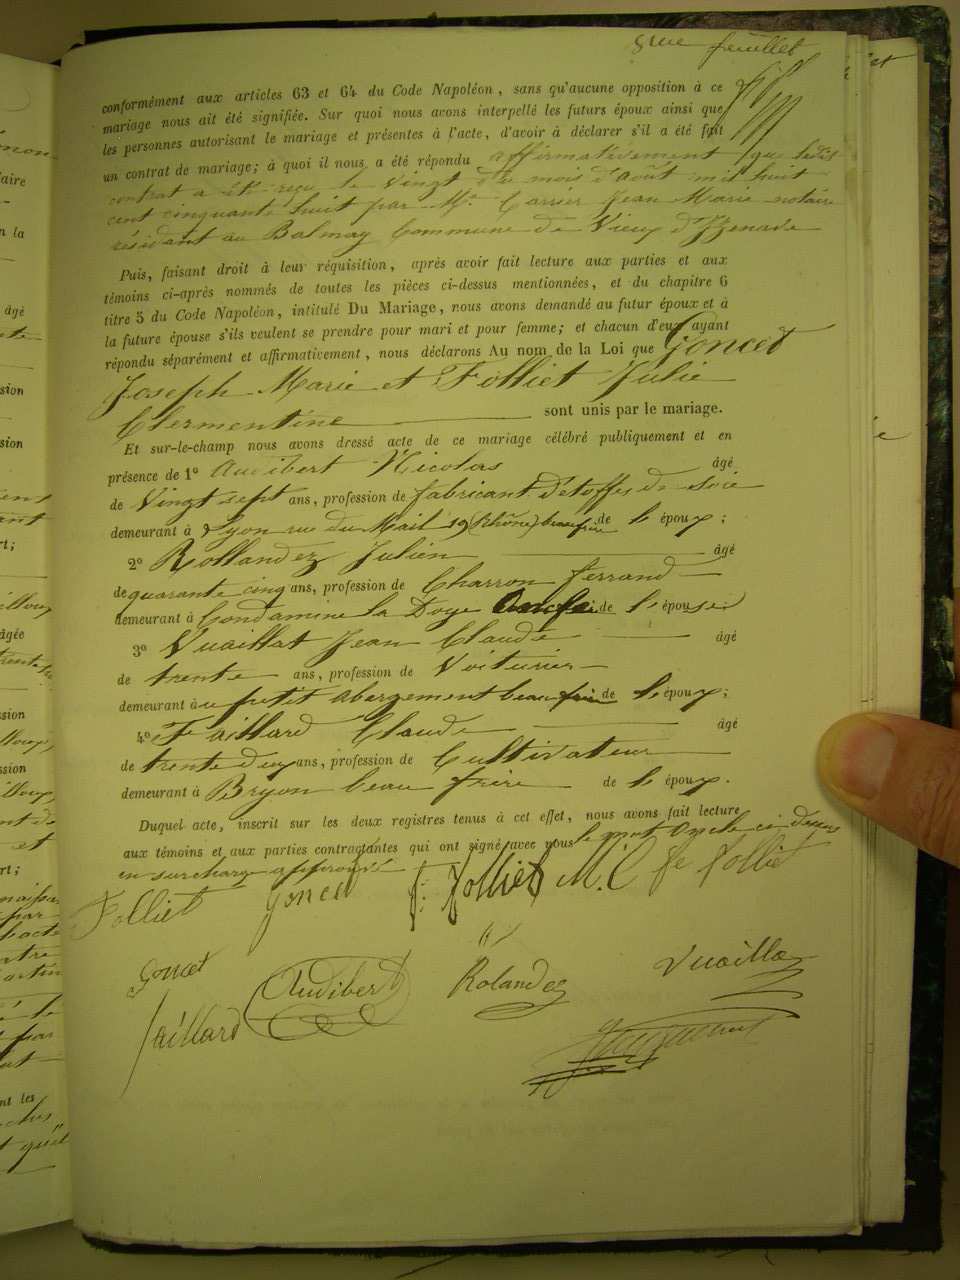 feuillet
conformément aux articles 63 et 64 du Code Napoléon, sans qu'aucune opposition à ce
mariage nous ait été signifiée. Sur quoi nous avons interpellé les futurs époux ainsi que
les personnes autorisant le mariage et présentes à l'acte, d'avoir à déclarer s'il a été fait
un contrat de mariage; à quoi il nous a été répondu affirmativement que ledit
contrat a été reçu le vingt du mois d'août mil huit
cent cinquante huit par Me Carrier Jean Marie notaire
résidant au Balmay Commune de Vieux d'Izenave
Puis, faisant droit à leur réquisition, après avoir fait lecture aux parties et aux
témoins ci-après nommés de toutes les pièces ci-dessus mentionnées, et du chapitre 6
titre 5 du Code Napoléon, intitulé Du Mariage, nous avons demandé au futur époux et à
la future épouse s'ils veulent se prendre pour mari et pour femme; et chacun d'eux ayant
répondu séparément et affirmativement, nous déclarons Au nom de la Loi que Goncet
Joseph Marie et Folliet Julie
Clermentine sont unis par le mariage.
Et sur-le-champ nous avons dressé acte de ce mariage célébré publiquement et en
présence de 1º Audibert Nicolas âgé
de Vingt sept ans, profession de fabricant d'étoffes de soie
demeurant à Lyon rue du Mail 19 (Rhône) beau frère de l'époux;
2º Rollandez Julien âgé
de quarante cinq ans, profession de Charron ferrand
demeurant à Condamine la Doye Oncle de l'épouse;
3º Vuaillat Jean Claude âgé
de trente ans, profession de Voiturier
demeurant au petit abergement beau frère de l'époux;
4º Faillard Claude âgé
de trente deux ans, profession de Cultivateur
demeurant à Bryon beau frère de l'époux.
Duquel acte, inscrit sur les deux registres tenus à cet effet, nous avons fait lecture
aux témoins et aux parties contractantes qui ont signé avec nous le mot Oncle ci dessus
en surcharge approuvé
Folliet Goncet f: Folliet M. C fe Folliet
Goncet Audibert Rolandez Vuailla
faillard